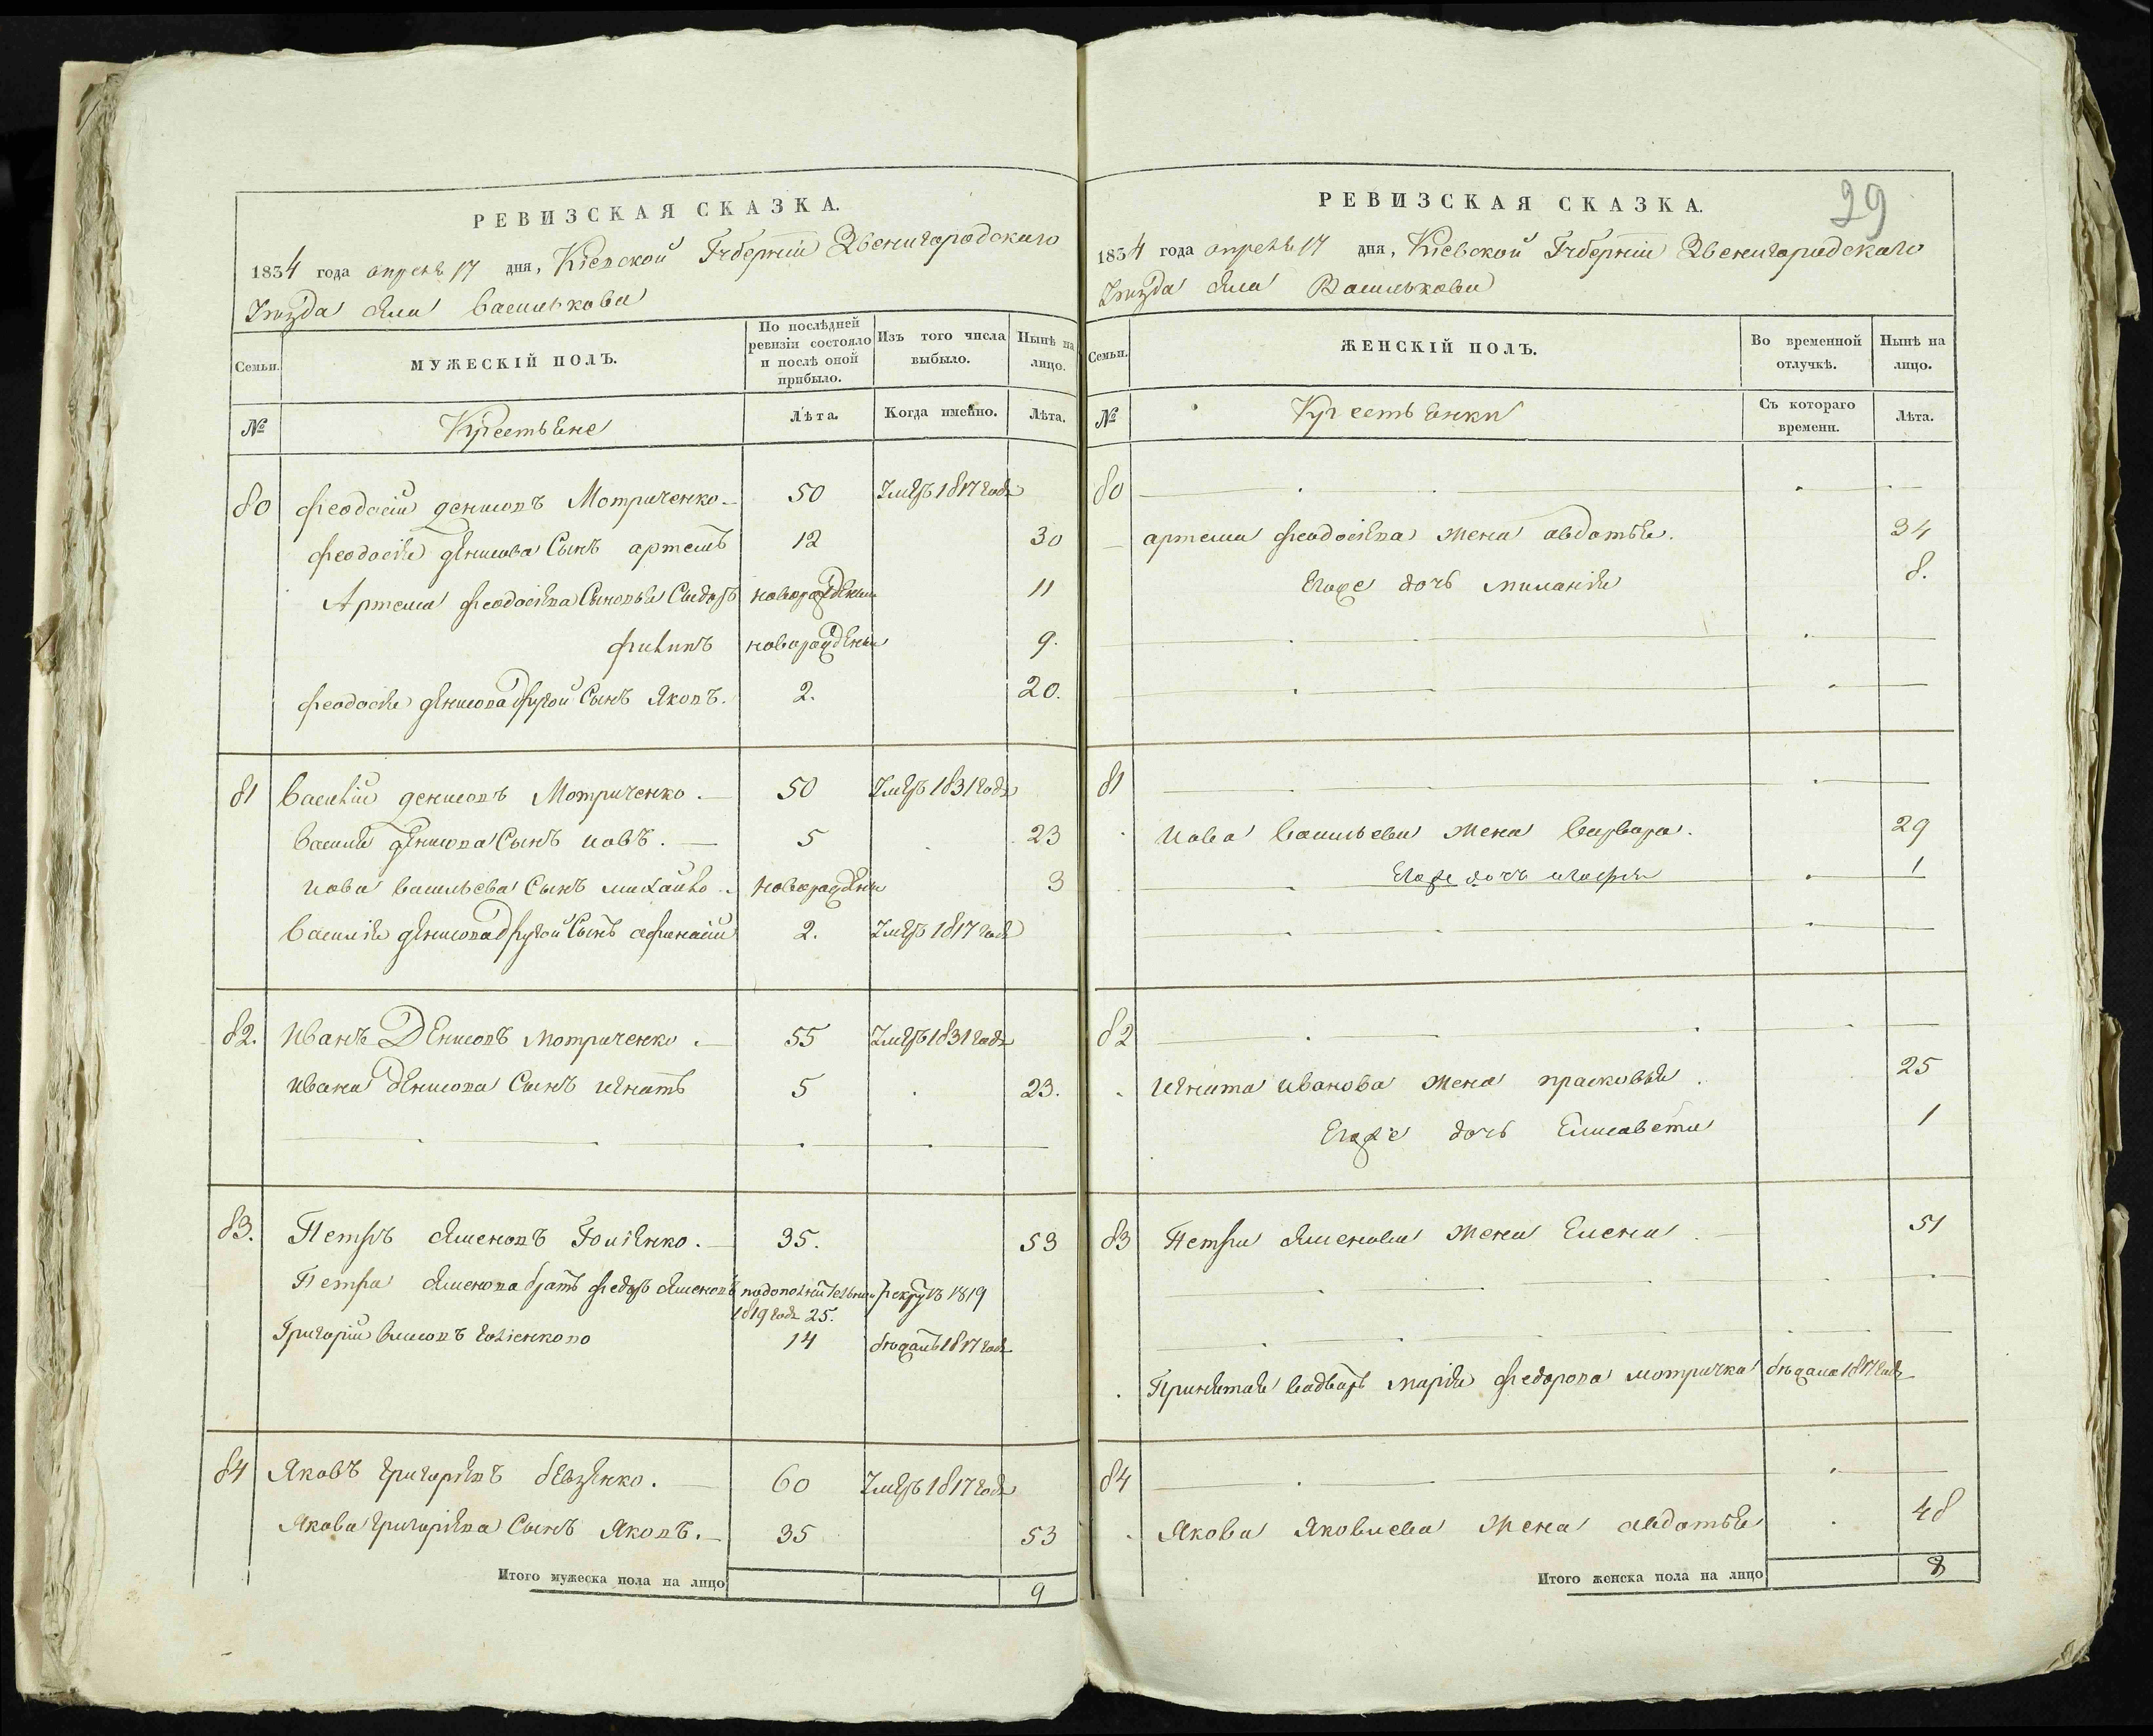 РЕВИЗСКАЯ СКАЗКА.
1834 года апреля 17 дня, Кіевской Губерніи Звенигородскаго
Уезда села Василькова
Семьи.
МУЖЕСКІЙ ПОЛЪ.
По послѣдней ревизіи состояло и послѣ оной прибыло.
Изъ того числа выбыло.
Нынѣ на лицо.
№
Крестьяне
Лѣта.
Когда именно.
Лѣта.
80 Феодосій денисовъ Мотриченко 50 Умеръ 1817 года
Феодосія денисова Сынъ артемъ 12 30
Артема Феодосіева Сыновья Сидоръ новорожденый 11
филипъ новорожденый 9.
Феодосія денисова другой Сынъ Яковъ. 2. 20.
81 Василій денисовъ Мотриченко. 50 Умеръ 1831 года
Василія денисова Сынъ иовъ. 5 23
иова васильева Сынъ михайло новорожденый 3
Василія денисова другой Сынъ афанасій 2. Умеръ 1817 года
82. Иванъ Денисовъ Мотриченко 55 Умеръ 1831 года
ивана денисова Сынъ игнатъ 5 23.
83. Петръ Семеновъ 35. 53
Петра Семенова братъ федоръ Семеновъ подополнительной 1819 года 25. рекрутъ 1819
Григорій 14 1817 года
84 Яковъ григорьевъ 60 Умеръ 1817 года
Якова григоріева Сынъ Яковъ. 35 53
Итого мужеска пола на лицо 9
29
РЕВИЗСКАЯ СКАЗКА.
1834 года апреля 17 дня, Кіевской Губерніи Звенигородскаго
Уезда села Василькова
Семьи.
ЖЕНСКІЙ ПОЛЪ.
Во временной отлучкѣ.
Нынѣ на лицо.
№
Крестьянки
Съ котораго времени.
Лѣта.
80
артема феодосіева жена авдотья. 34
Егоже дочь миланія 8.
81
иова Васильева жена варвара. 29
Егоже дочь 1
82
игната иванова жена прасковья. 25
Егоже дочь Елисавета 1
83 Петра Семенова жена Елена 51
марія федорова мотричка 1817 года
84
Якова Яковлева жена авдотья 48
Итого женска пола на лицо 8